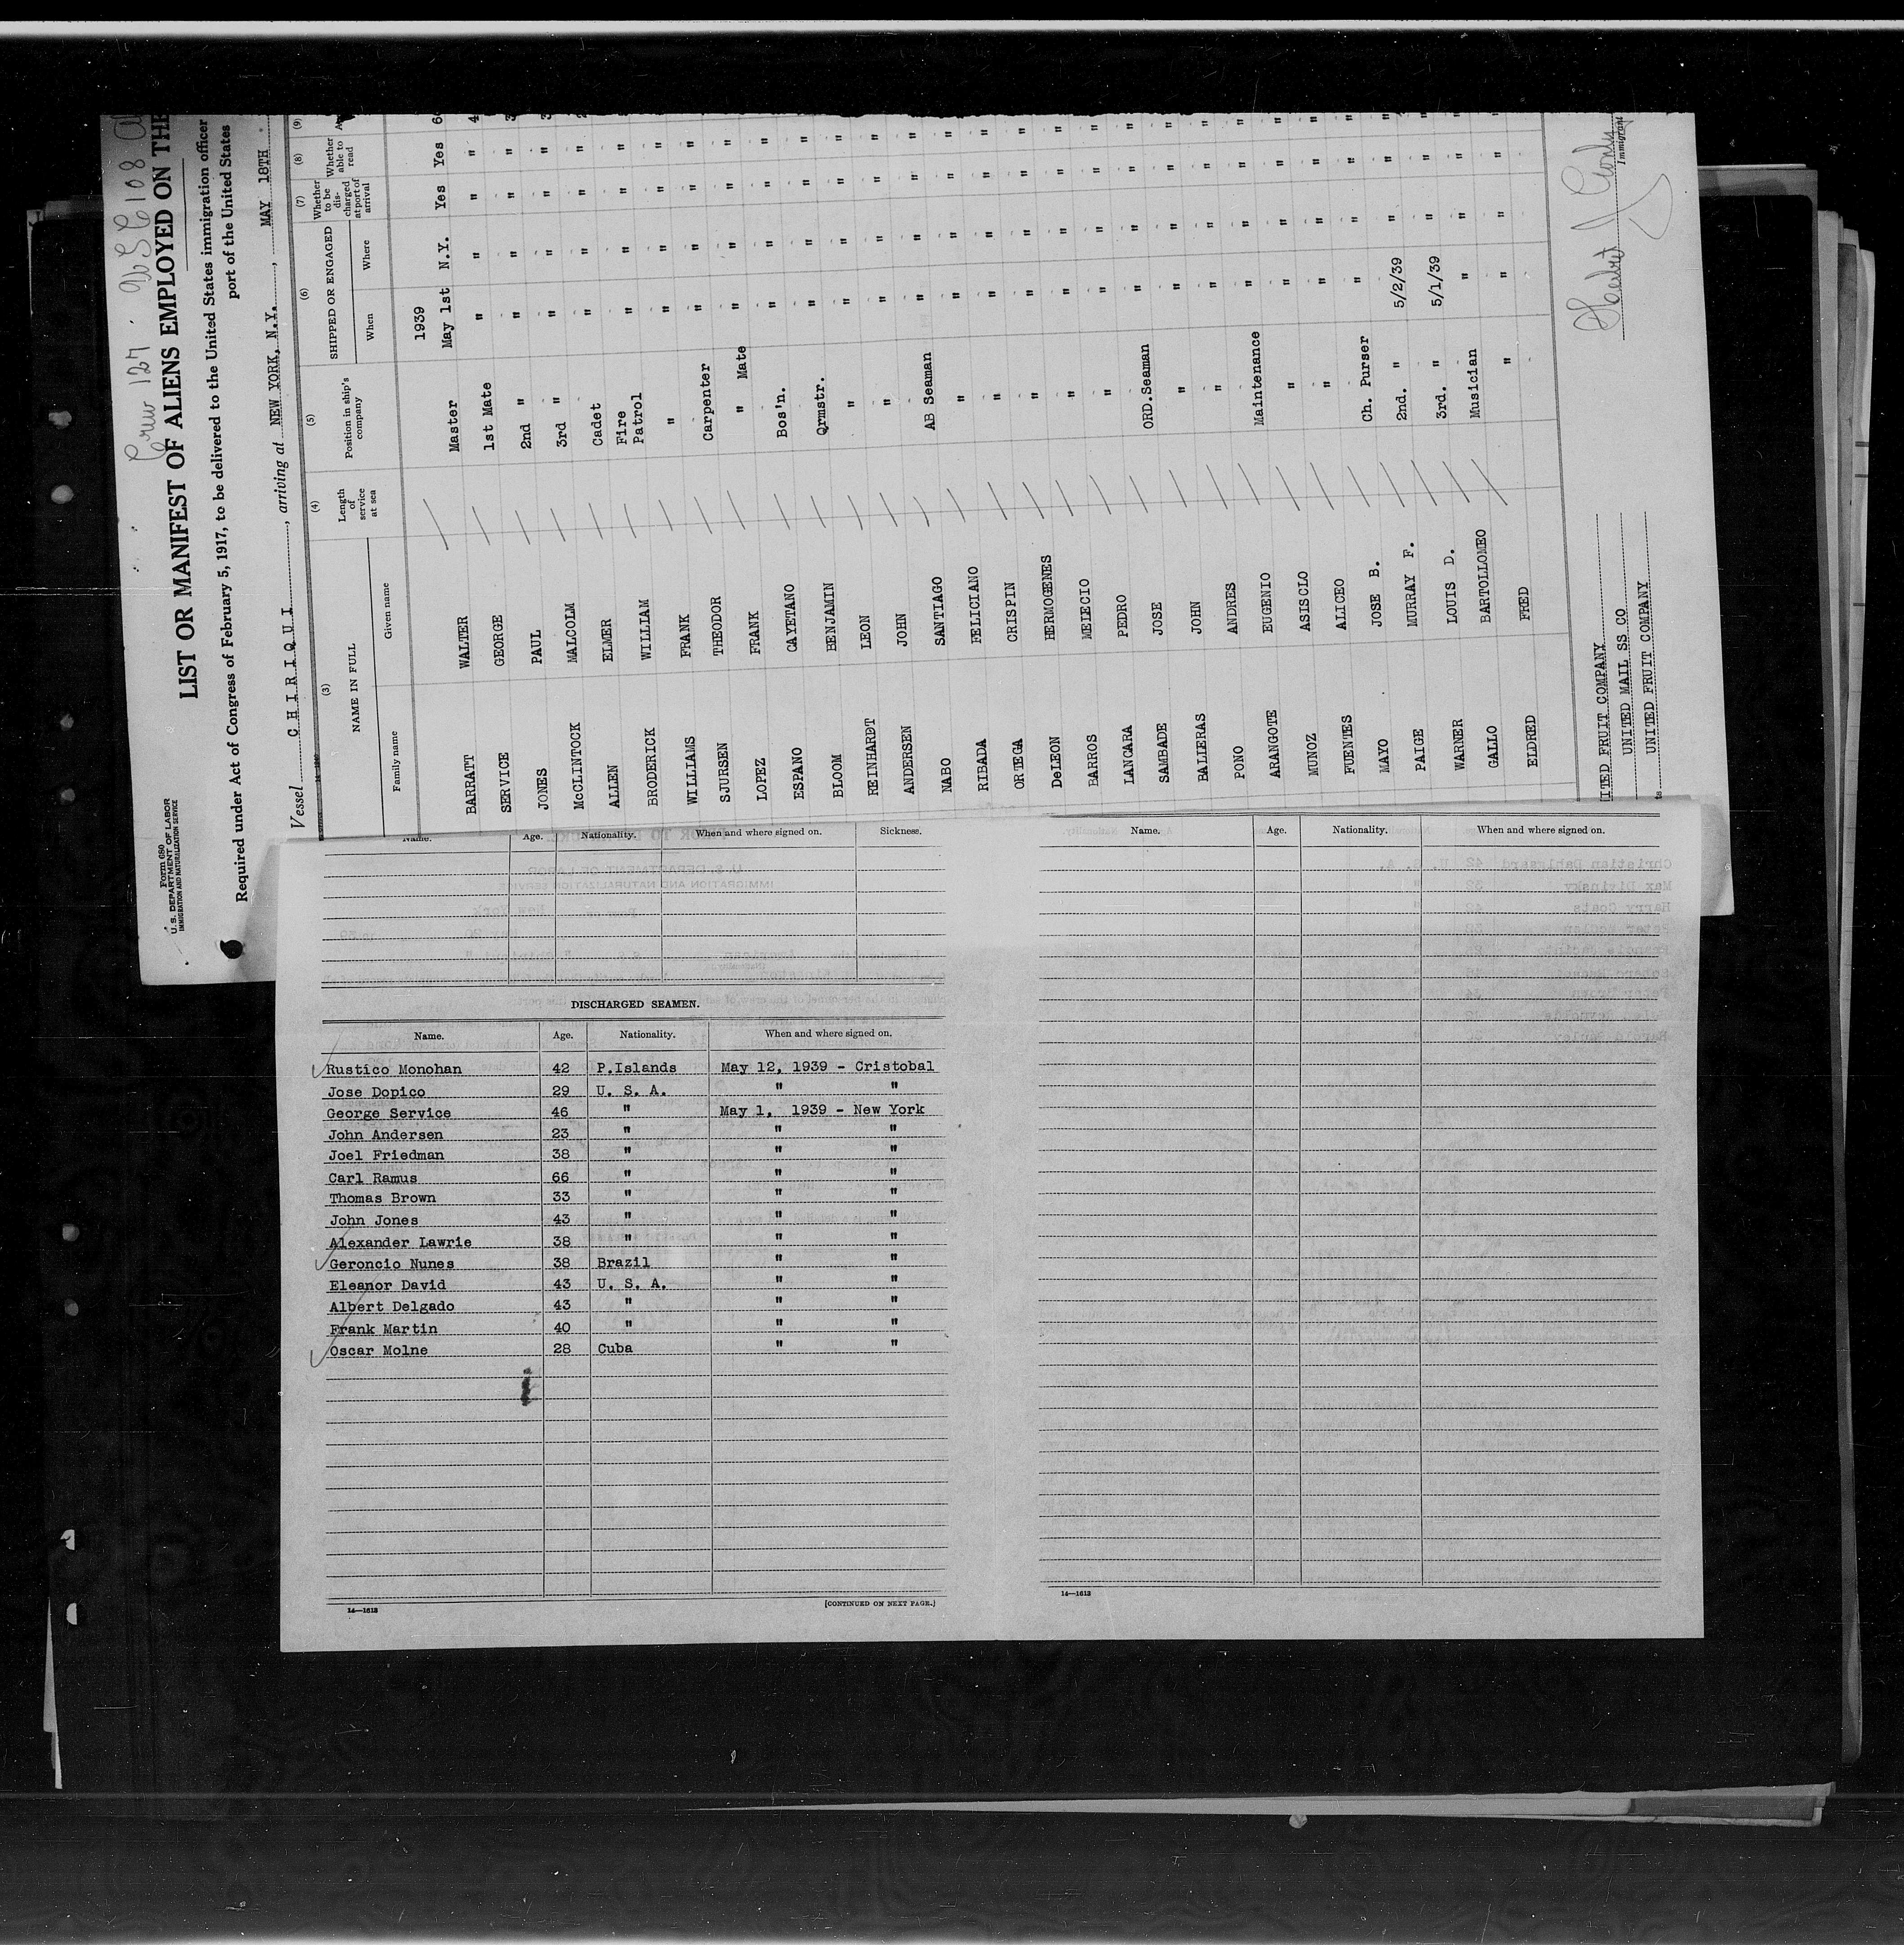 Crew 127.
LIST OR MANIFEST OF ALIENS EMPLOYED ON THE
Required under Act of Congress of February 5, 1917, to be delivered to the United States immigration officer
port of the United States
Form 680
U. S. DEPARTMENT OF LABOR
IMMIGRATION AND NATURALIZATION SERVICE
Vessel CHIRIQUI, arriving at NEW YORK, N.Y., MAY 18TH
(3) (4) (5) (6) (7) (8) (9)
NAME IN FULL Length of service at sea Position in ship's company SHIPPED OR ENGAGED Whether to be discharged at port of arrival Whether able to read
Family name Given name When Where
1939
BARRATT WALTER Master May 1st N.Y. Yes Yes
SERVICE GEORGE 1st Mate " " " "
JONES PAUL 2nd " " " " "
McCLINTOCK MALCOLM 3rd " " " " "
ALLEN ELMER Cadet " " " "
BRODERICK WILLIAM Fire Patrol " " " "
WILLIAMS FRANK " " " " "
SJURSEN THEODOR Carpenter " " " "
LOPEZ FRANK " Mate " " " "
ESPANO CAYETANO Bos'n. " " " "
BLOOM BENJAMIN Qrmstr. " " " "
REINHARDT LEON " " " " "
ANDERSEN JOHN " " " " "
NABO SANTIAGO AB Seaman " " " "
RIBADA FELICIANO " " " " "
ORTEGA CRISPIN " " " " "
DeLEON HERMOGENES " " " " "
BARROS MELECIO " " " " "
LANCARA PEDRO " " " " "
SAMBADE JOSE ORD.Seaman " " " "
BALLERAS JOHN " " " " "
PONO ANDRES " " " " "
ARANGOTE EUGENIO Maintenance " " " "
MUNOZ ASISCLO " " " " "
FUENTES ALICEO " " " " "
MAYO JOSE B. Ch. Purser " " " "
PAIGE MURRAY F. 2nd. " 5/2/39 " " "
WARNER LOUIS D. 3rd. " 5/1/39 " " "
GALLO BARTOLLOMEO Musician " " " "
ELDRED FRED " " " " "
ITED FRUIT COMPANY
UNITED MAIL SS CO
UNITED FRUIT COMPANY
Immigrant
Name. Age. Nationality. When and where signed on. Sickness.
DISCHARGED SEAMEN.
Name. Age. Nationality. When and where signed on.
Rustico Monohan 42 P.Islands May 12, 1939 - Cristobal
Jose Dopico 29 U. S. A. " "
George Service 46 " May 1, 1939 - New York
John Andersen 23 " " "
Joel Friedman 38 " " "
Carl Ramus 66 " " "
Thomas Brown 33 " " "
John Jones 43 " " "
Alexander Lawrie 38 " " "
Geroncio Nunes 38 Brazil " "
Eleanor David 43 U. S. A. " "
Albert Delgado 43 " " "
Frank Martin 40 " " "
Oscar Molne 28 Cuba " "
14—1612
[CONTINUED ON NEXT PAGE.]
Name. Age. Nationality. When and where signed on.
14—1612